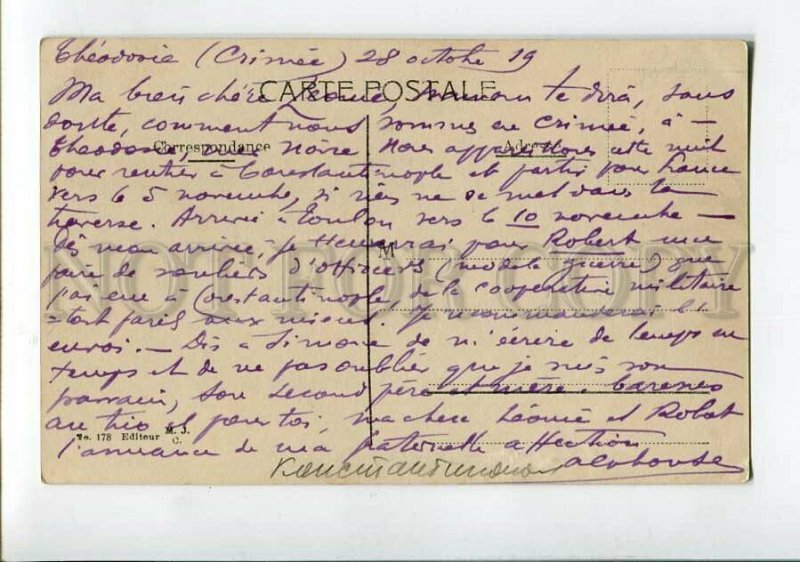 Théodosie (Crimée) 28 octobre 19
CARTE POSTALE
Ma bien chère Léonie, maman te dira, sans
doute, comment nous sommes en Crimée, à -
Correspondance
Adresse
Théodosie, Mer Noire. Nous cette nuit
pour rentrer à Constantinople et partir pour France
vers le 5 novembre, si rien ne se met dans la
traverse. Arrivée à Toulon vers le 10 novembre -
dès mon arrivée, je pour Robert une
M
paire de souliers d'officiers (modèle guerre) que
j'ai eue à Constantinople, de la coopérative militaire
- tout pareil aux miens. Je recommanderai l'
envoi. - Dis à Simone de m'écrire de temps en
temps et de ne pas oublier que je suis son
parrain, son second père et mère. Caresses
au trio et pour toi, ma chère Léonie et Robert
No. 178 Editeur M. J. C.
l'assurance de ma paternelle affection
Alphonse
NOT FOR COPY